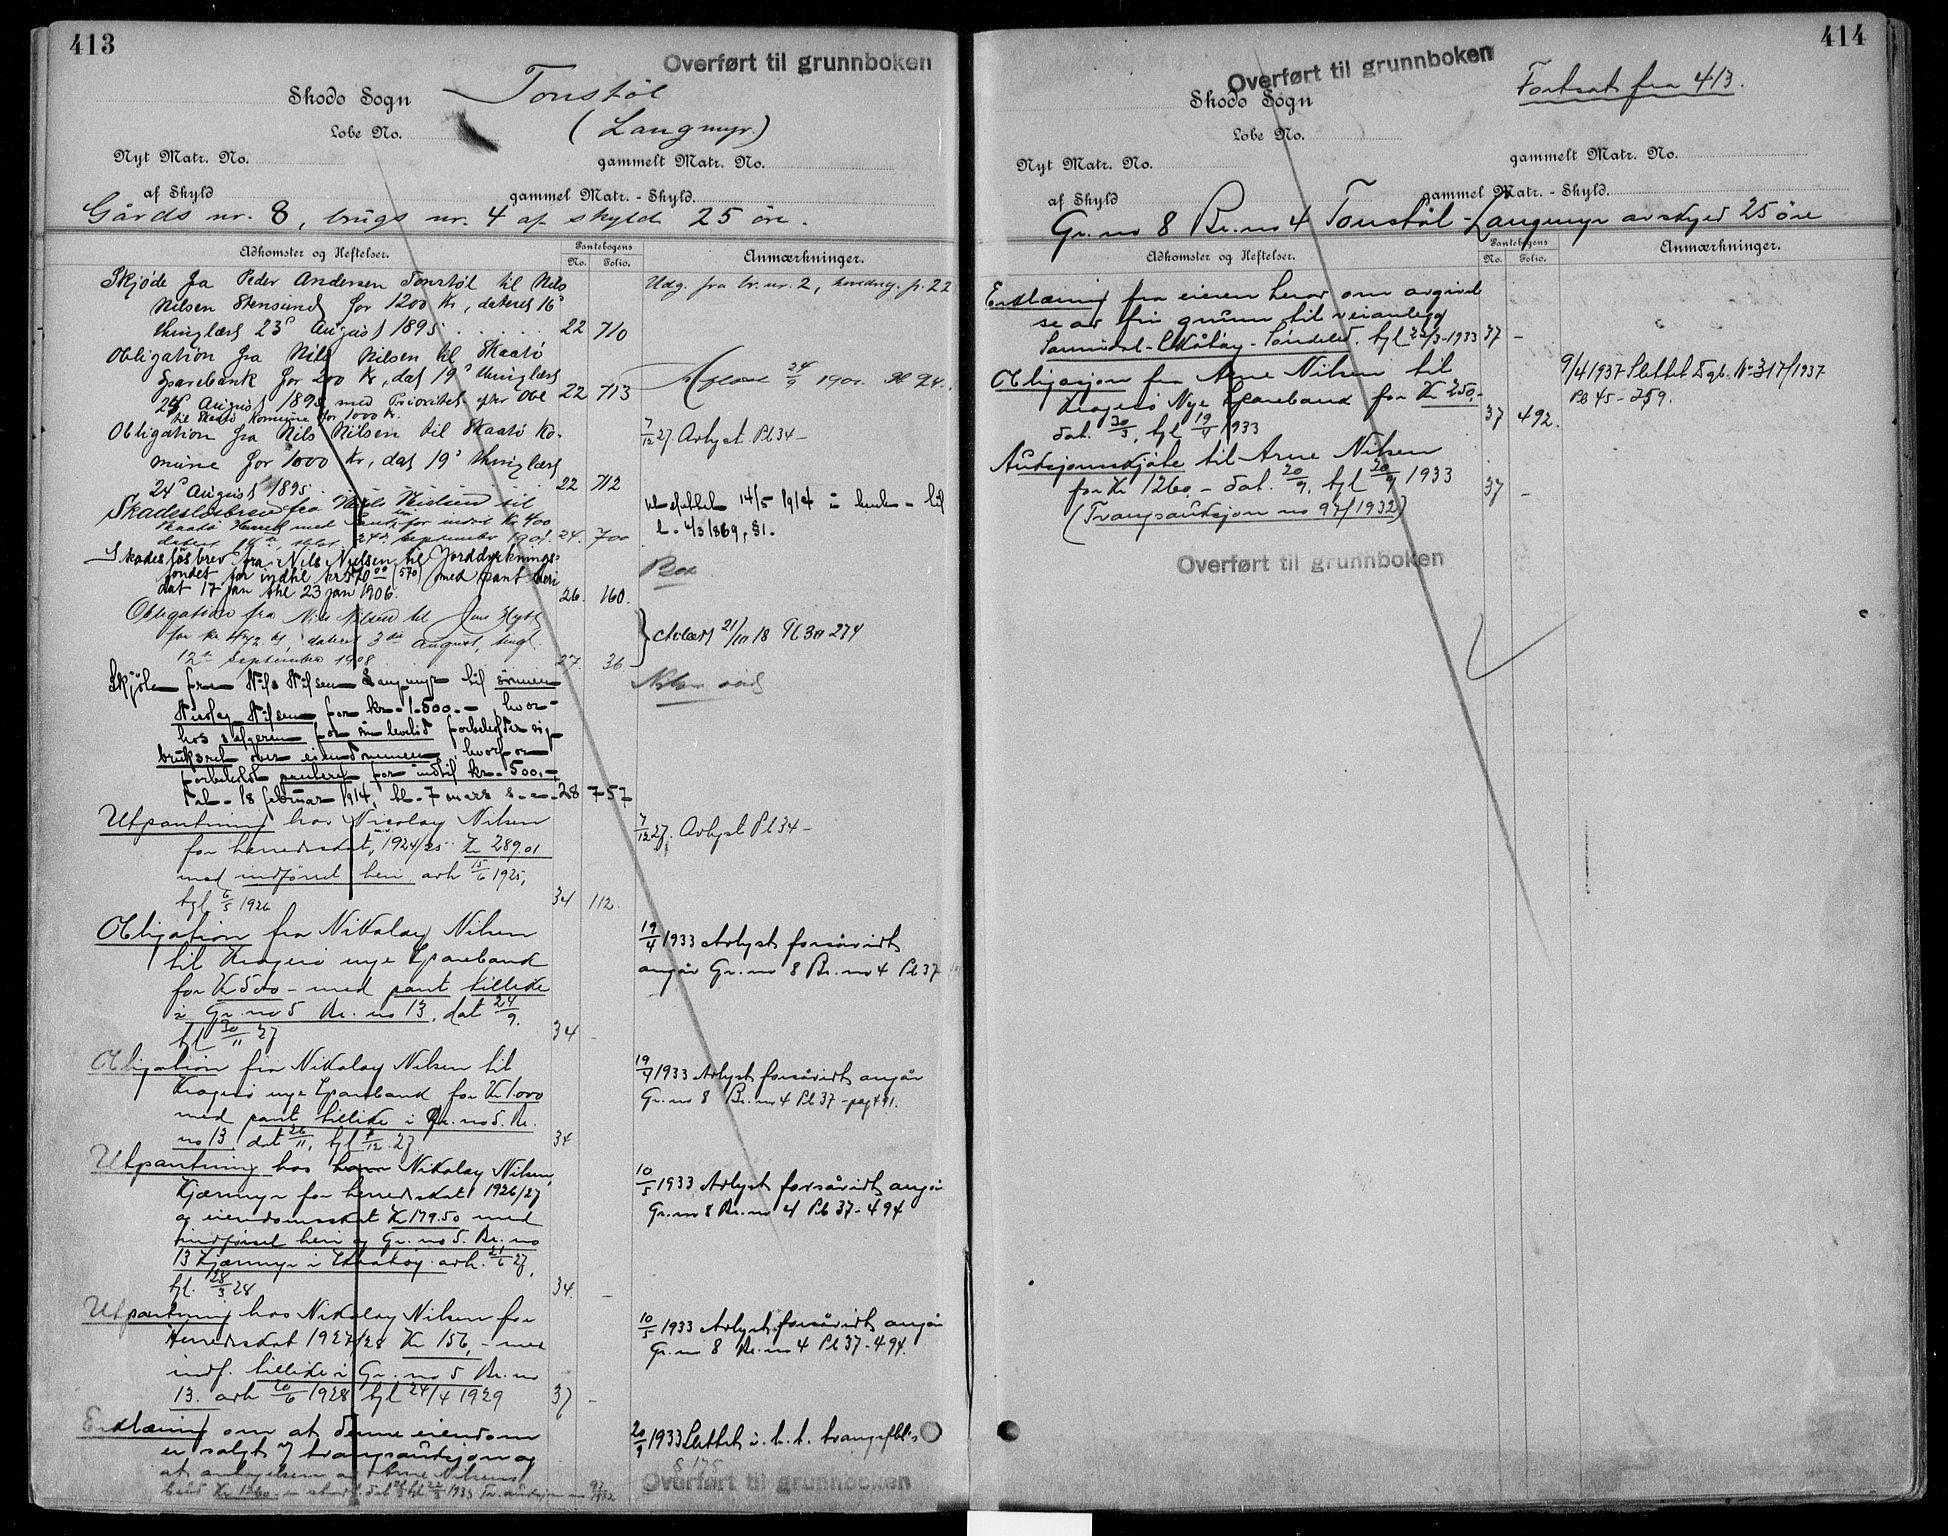 413
Overført til grunnboken
Skodo Sogn
Tonstøl
Lobe No.
(Langmyr.)
Nyt Matr. No.
gammelt Matr. No.
af Skyld
gammel Matr.-Skyld.
Gårds nr. 8, brugs nr. 4 af skyld 25 öre.
Adkomster og Heftelser.
Pantebogens
No.
Folio.
Anmærkninger.
Skjöde fra Peder Andersen Tonstöl til Nils
Udg. fra br. nr. 2, p. 22
Nilsen Stensund for 1200 Kr, dateret 16'
thinglæst 23' August 1895. 22 710
Obligation fra Nils Nilsen til Skaatö
Sparebank for 200 Kr, dat 19' thinglæst
24' August 1895 med Prioritet efter Obl 22 713
Aflæst 24/9 1901.
til Skaatö Komune for 1000 Kr.
Obligation fra Nils Nilsen til Skaatö Ko-
7/12 27 Avlyst. Pb 34 –
mune for 1000 Kr, dat 19' thinglæst
24' August 1895. 22 712
Skadeslösbrev fra Niels Nielsen til
Skaatö Herred med Pant for indtil Kr 400
slettet 14/5 1914 i
dateret thlst 24de September 1901. 24. 700
L. 4/3 1869, §1.
Skadeslösbrev fra Nils Nielsen til Jorddyrknings-
fondet for indtil kr 570 00 (570) med pant heri
dat 17 jan thl 23 jan 1906. 26. 160.
Obligation fra Nils Nilsen til Jens
for kr dateret 3die August, tingl.
Avlæst 21/10 18 Pb 30 274
12te September 1908 27. 36
Skjöte fra Nils Nilsen Langmyr til sönnen
Nicolay Nilsen for kr. 1.500.- hvor-
hos sælgeren for sin levetid forbeholder sig
bruksret over eiendommen, hvorfor
forbeholdt panteret for indtil kr. 500.-
dat. 18 februar 1914, tl. 7 mars s. a. 28 757
Utpantning hos Nicolay Nilsen
7/12 27. Avlyst Pb 34 –
for herredskat 1924/25 Kr 289.01
med indförsel heri avh 15/6 1925,
tgl 6/5 1926 34 112.
Obligation fra Nikolay Nilsen
19/4 1933 Avlyst forsåvidt
til Kragerö nye Sparebank
angår Gr. no 8 Br. no 4 Pb 37
for Kr 500 – med pant tillike
i Gr. no 5 Br. no 13, dat 24/9.
tgl 30/11 27 34 –
Obligation fra Nikolay Nilsen til
19/4 1933 Avlyst forsåvidt angår
Kragerö nye Sparebank for Kr 1.000
Gr. no 8 Br. no 4 Pb 37 – pag 491.
med pant tillike i Gr. no 5. Br.
no 13 dat 26/11, tgl 7/12 27 34
Utpantning hos Nikolay Nilsen,
10/5 1933 Avlyst forsåvidt angår
Kjærmyr for herredskat 1926/27
Gr. no 8 Br. no 4 Pb 37 – 494
og eiendomsskat Kr 179.50 med
indförsel heri og Gr. no 5. Br. no
13 Kjærmyr i Skåtöy avh. 21/6 27,
tgl. 28/3 28 34. –
Utpantning hos Nikolay Nilsen for
10/5 1933 Avlyst forsåvidt angår
Herredskat 1927/28 Kr 156,- med
Gr. no 8 Br. no 4 Pb 37 – 494.
indf. tillike i Gr. no 5 Br. no
13. avh 20/6 1928 tgl 24/4 1929 37 –
Erklæring om at denne eiendom
20/9 1933 Slettet i. h. t. tvangsfbl.
er solgt v/ tvangsauksjon og
§ 175
at antagelsen av Arne Nilsens
bud Kr 1260
Overført til grunnboken
414
Overført til grunnboken
Skodo Sogn
Fortsat fra 413.
Lobe No.
Nyt Matr. No.
gammelt Matr. No.
af Skyld
gammel Matr.-Skyld.
Gr. no 8 Br. no 4 Tonstöl - Langmyr av skyld 25 öre
Adkomster og Heftelser.
Pantebogens
No.
Folio.
Anmærkninger.
Erklæring fra eieren herav om avgivel
se av fri grunn til veianlegg
Sannidal - Skåtöy - Söndeled. tgl 22/3-1933 37 –
Obligasjon fra Arne Nilsen til
9/4 1937 Slettet Dgb. No 317/1937
Kragerö Nye Sparebank for Kr 250,-
Pb 45 – 259.
dat. 30/3, tgl 19/4 1933 37 492.
Auksjonsskjöte til Arne Nilsen
for Kr 1260,- dat. 20/9, tgl 20/9 1933
37 –
(Tvangsauksjon no 97/1932)
Overført til grunnboken